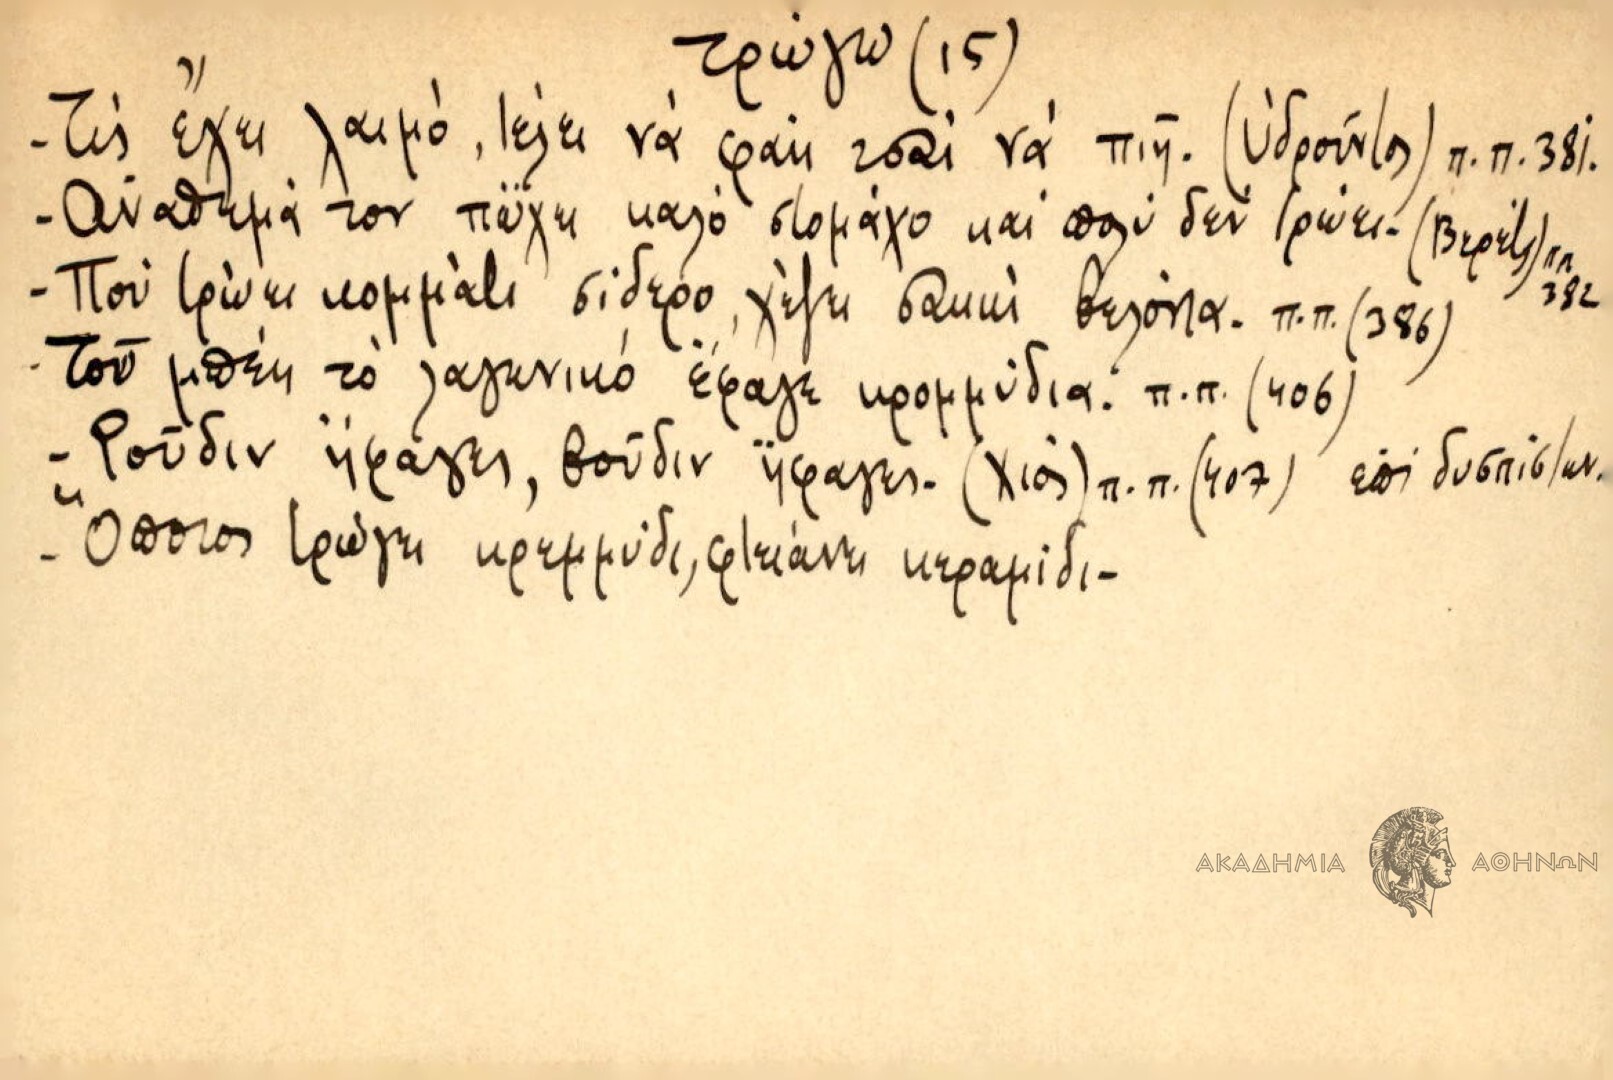 τρώγω (15)
- Τὶς ἔχει λαιμό, θέλει νὰ φάῃ τσαὶ νὰ πιῇ. (Ὑδροῦντος) π.π. 381.
- Ἀνάθεμά τον πὤχει καλὸ στομάχο καὶ πολὺ δὲν τρώει - (Βερέτ.) π.π. 382
- Ποὺ τρώει κομμάτι σίδερο, χέζει σακκὶ βελόνια - π.π. (386)
- Τοῦ μπέη τὸ λαγηνικό ἔφαγε κρομμύδια. π.π. (406)
- Ροῦδιν ἤφαγες, βοῦδιν ἤφαγες - (Χίος) π.π. (407) ἐπὶ δυσπίστων.
- Ὅποιος τρώγει κρεμμύδι, φτειάνει κεραμίδι -
ΑΚΑΔΗΜΙΑ ΑΘΗΝΩΝ